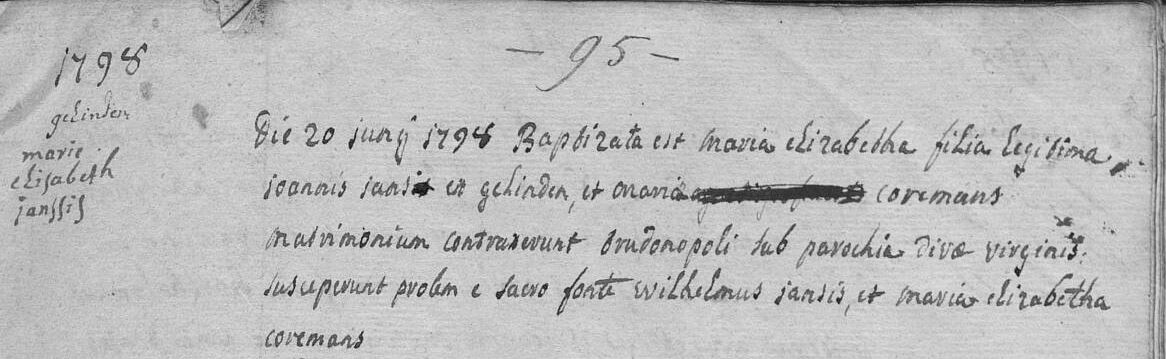 1798
- 95 -
gelinden
marie
elisabeth
janssis
Die 20 junij 1798 Baptizata est maria elizabetha filia legitima
joannis jansis ex gelinden, et maria coremans
matrimonium contraxerunt trudonopoli sub parochia divæ virginis.
susceperunt prolem e sacro fonte wilhelmus jansis, et maria elizabetha
coremans